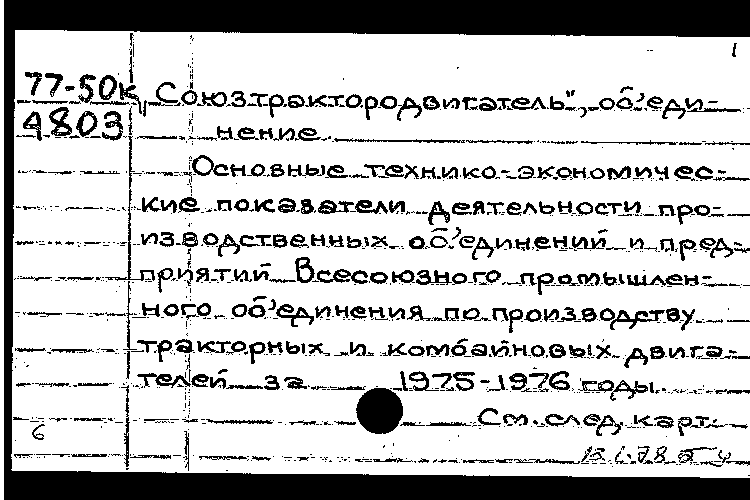 1
77-50к
4803
„Союзтрактородвигатель", об'еди-
нение.
Основные технико-экономичес-
кие показатели деятельности про-
изводственных об'единений и пред-
приятий Всесоюзного промышлен-
ного об'единения по производству
тракторных и комбайновых двига-
телей за 1975-1976 годы.
См. след. карт.
6